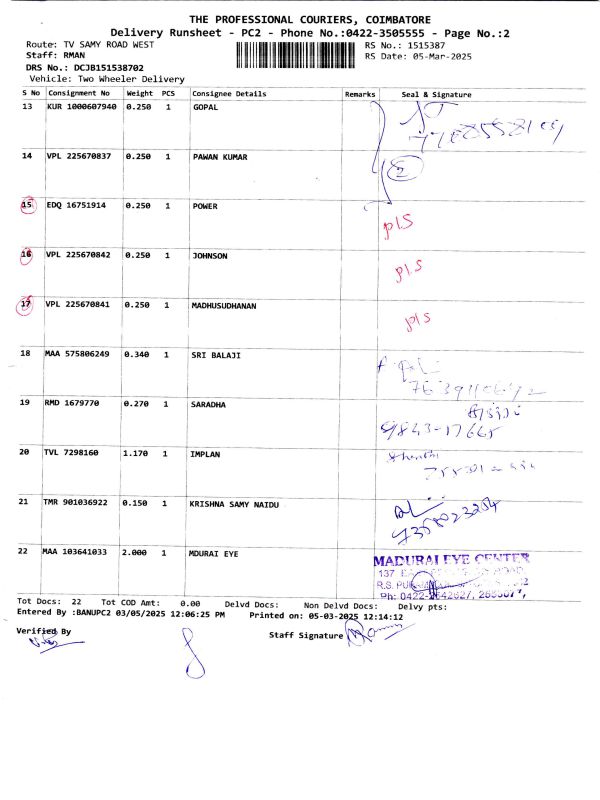 THE PROFESSIONAL COURIERS, COIMBATORE
Delivery Runsheet - PC2 - Phone No.:0422-3505555 - Page No.:2
Route: TV SAMY ROAD WEST
RS No.: 1515387
Staff: RMAN
RS Date: 05-Mar-2025
DRS No.: DCJB151538702
Vehicle: Two Wheeler Delivery
S No Consignment No Weight PCS Consignee Details Remarks Seal & Signature
13 KUR 1000607940 0.250 1 GOPAL
14 VPL 225670837 0.250 1 PAWAN KUMAR 2
15 EDQ 16751914 0.250 1 POWER PIS
16 VPL 225670842 0.250 1 JOHNSON PIS
17 VPL 225670841 0.250 1 MADHUSUDHANAN PIS
18 MAA 575806249 0.340 1 SRI BALAJI
19 RMD 1679770 0.270 1 SARADHA
9843-17665
20 TVL 7298160 1.170 1 IMPLAN
21 TMR 901036922 0.150 1 KRISHNA SAMY NAIDU
7358023254
22 MAA 103641033 2.000 1 MDURAI EYE
MADURAI EYE CENTER
137
R.S.
Ph: 0422-
Tot Docs: 22 Tot COD Amt: 0.00 Delvd Docs: Non Delvd Docs: Delvy pts:
Entered By :BANUPC2 03/05/2025 12:06:25 PM Printed on: 05-03-2025 12:14:12
Verified By
Staff Signature